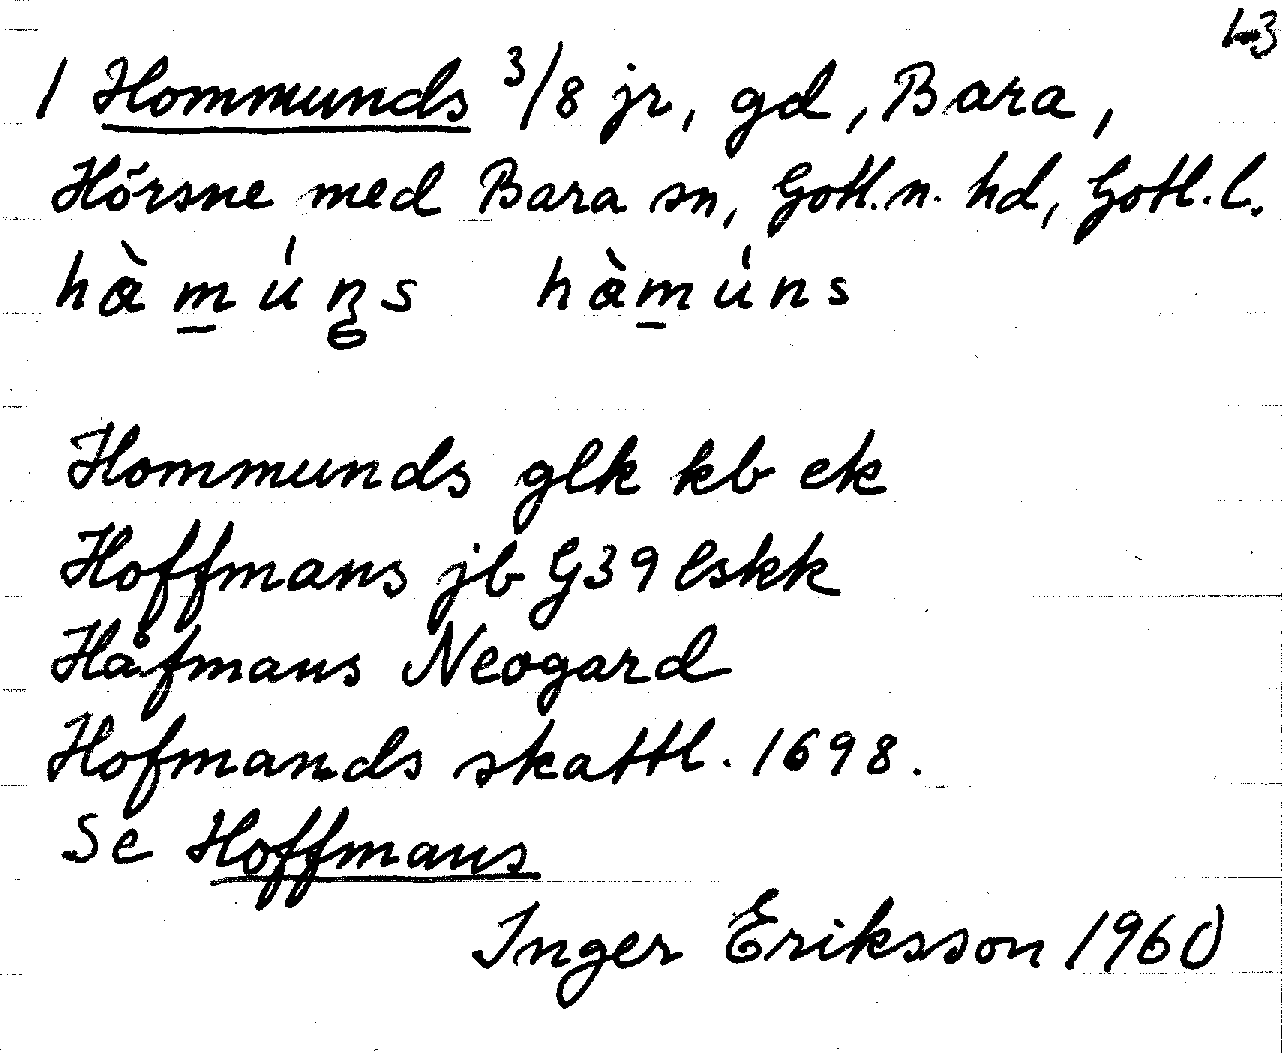 1 Hommunds 3/8 jr, gd, Bara,
Hörsne med Bara sn, Gotl.n. hd, Gotl.l.
Hommunds glk kb ek
Hoffmans jb G39 lskk
Håfmans Neogard
Hofmands skattl. 1698.
Se Hoffmans
Inger Eriksson 1960